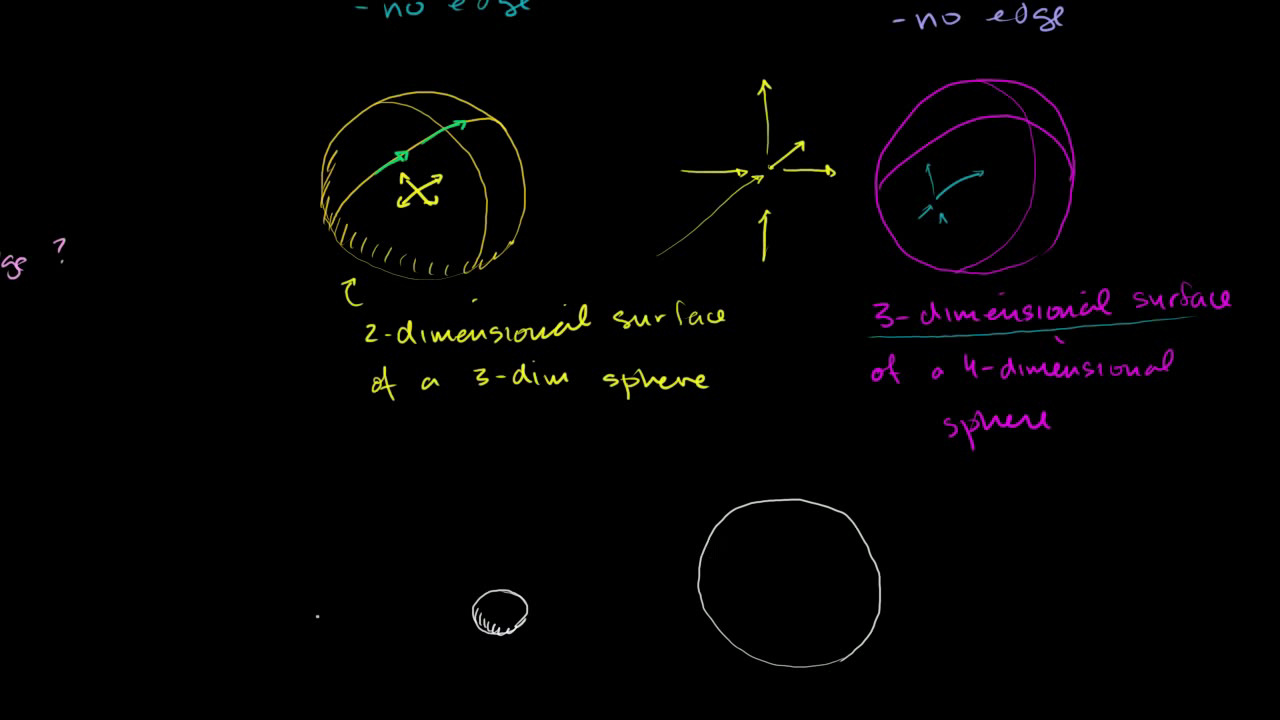 -no edge
-no edge
ge ?
2-dimensional surface
of a 3-dim sphere
3-dimensional surface
of a 4-dimensional
sphere